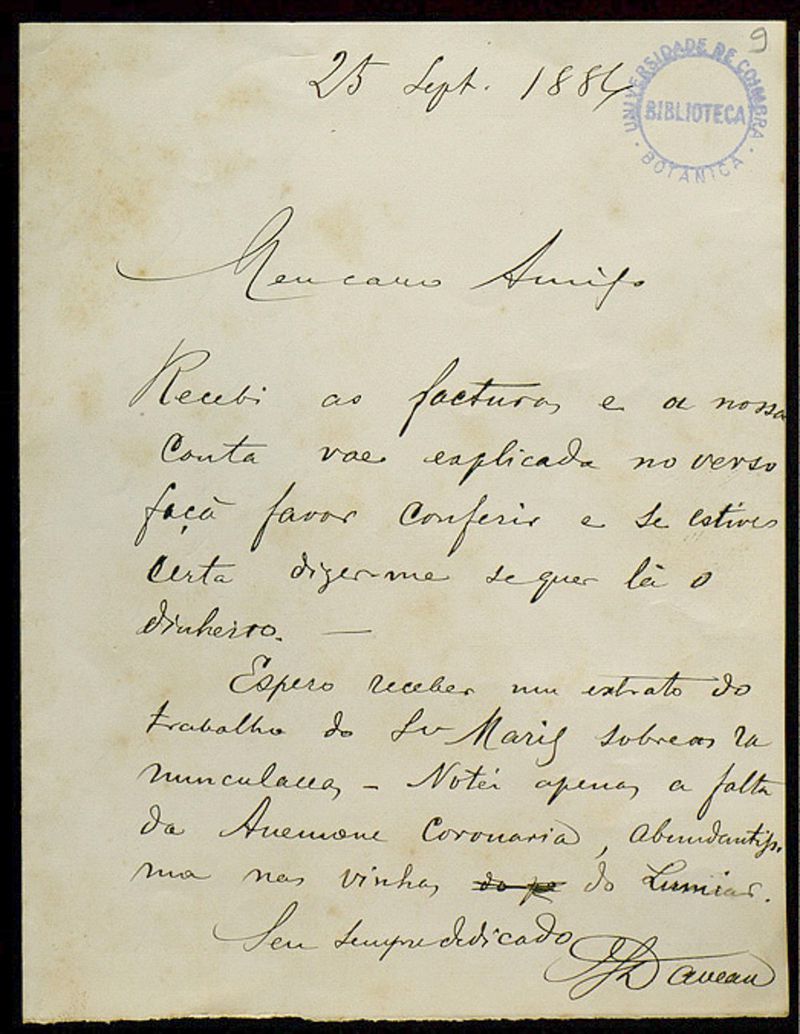 9
25 Sept. 1884
UNIVERSIDADE DE COIMBRA
BIBLIOTECA
BOTANICA
Meu caro Amigo
Recebi as facturas e a nossa
conta vae explicada no verso
faça favor conferir e se estiver
certa dizer-me se quer lá o
dinheiro. —
Espero receber um extrato do
trabalho do Sr Mariz sobre as ra
nunculaceas – Notei apenas a falta
da Anemone Coronaria, abundantiss.
ma nas vinhas do Lumiar.
Seu sempre dedicado
J Daveau